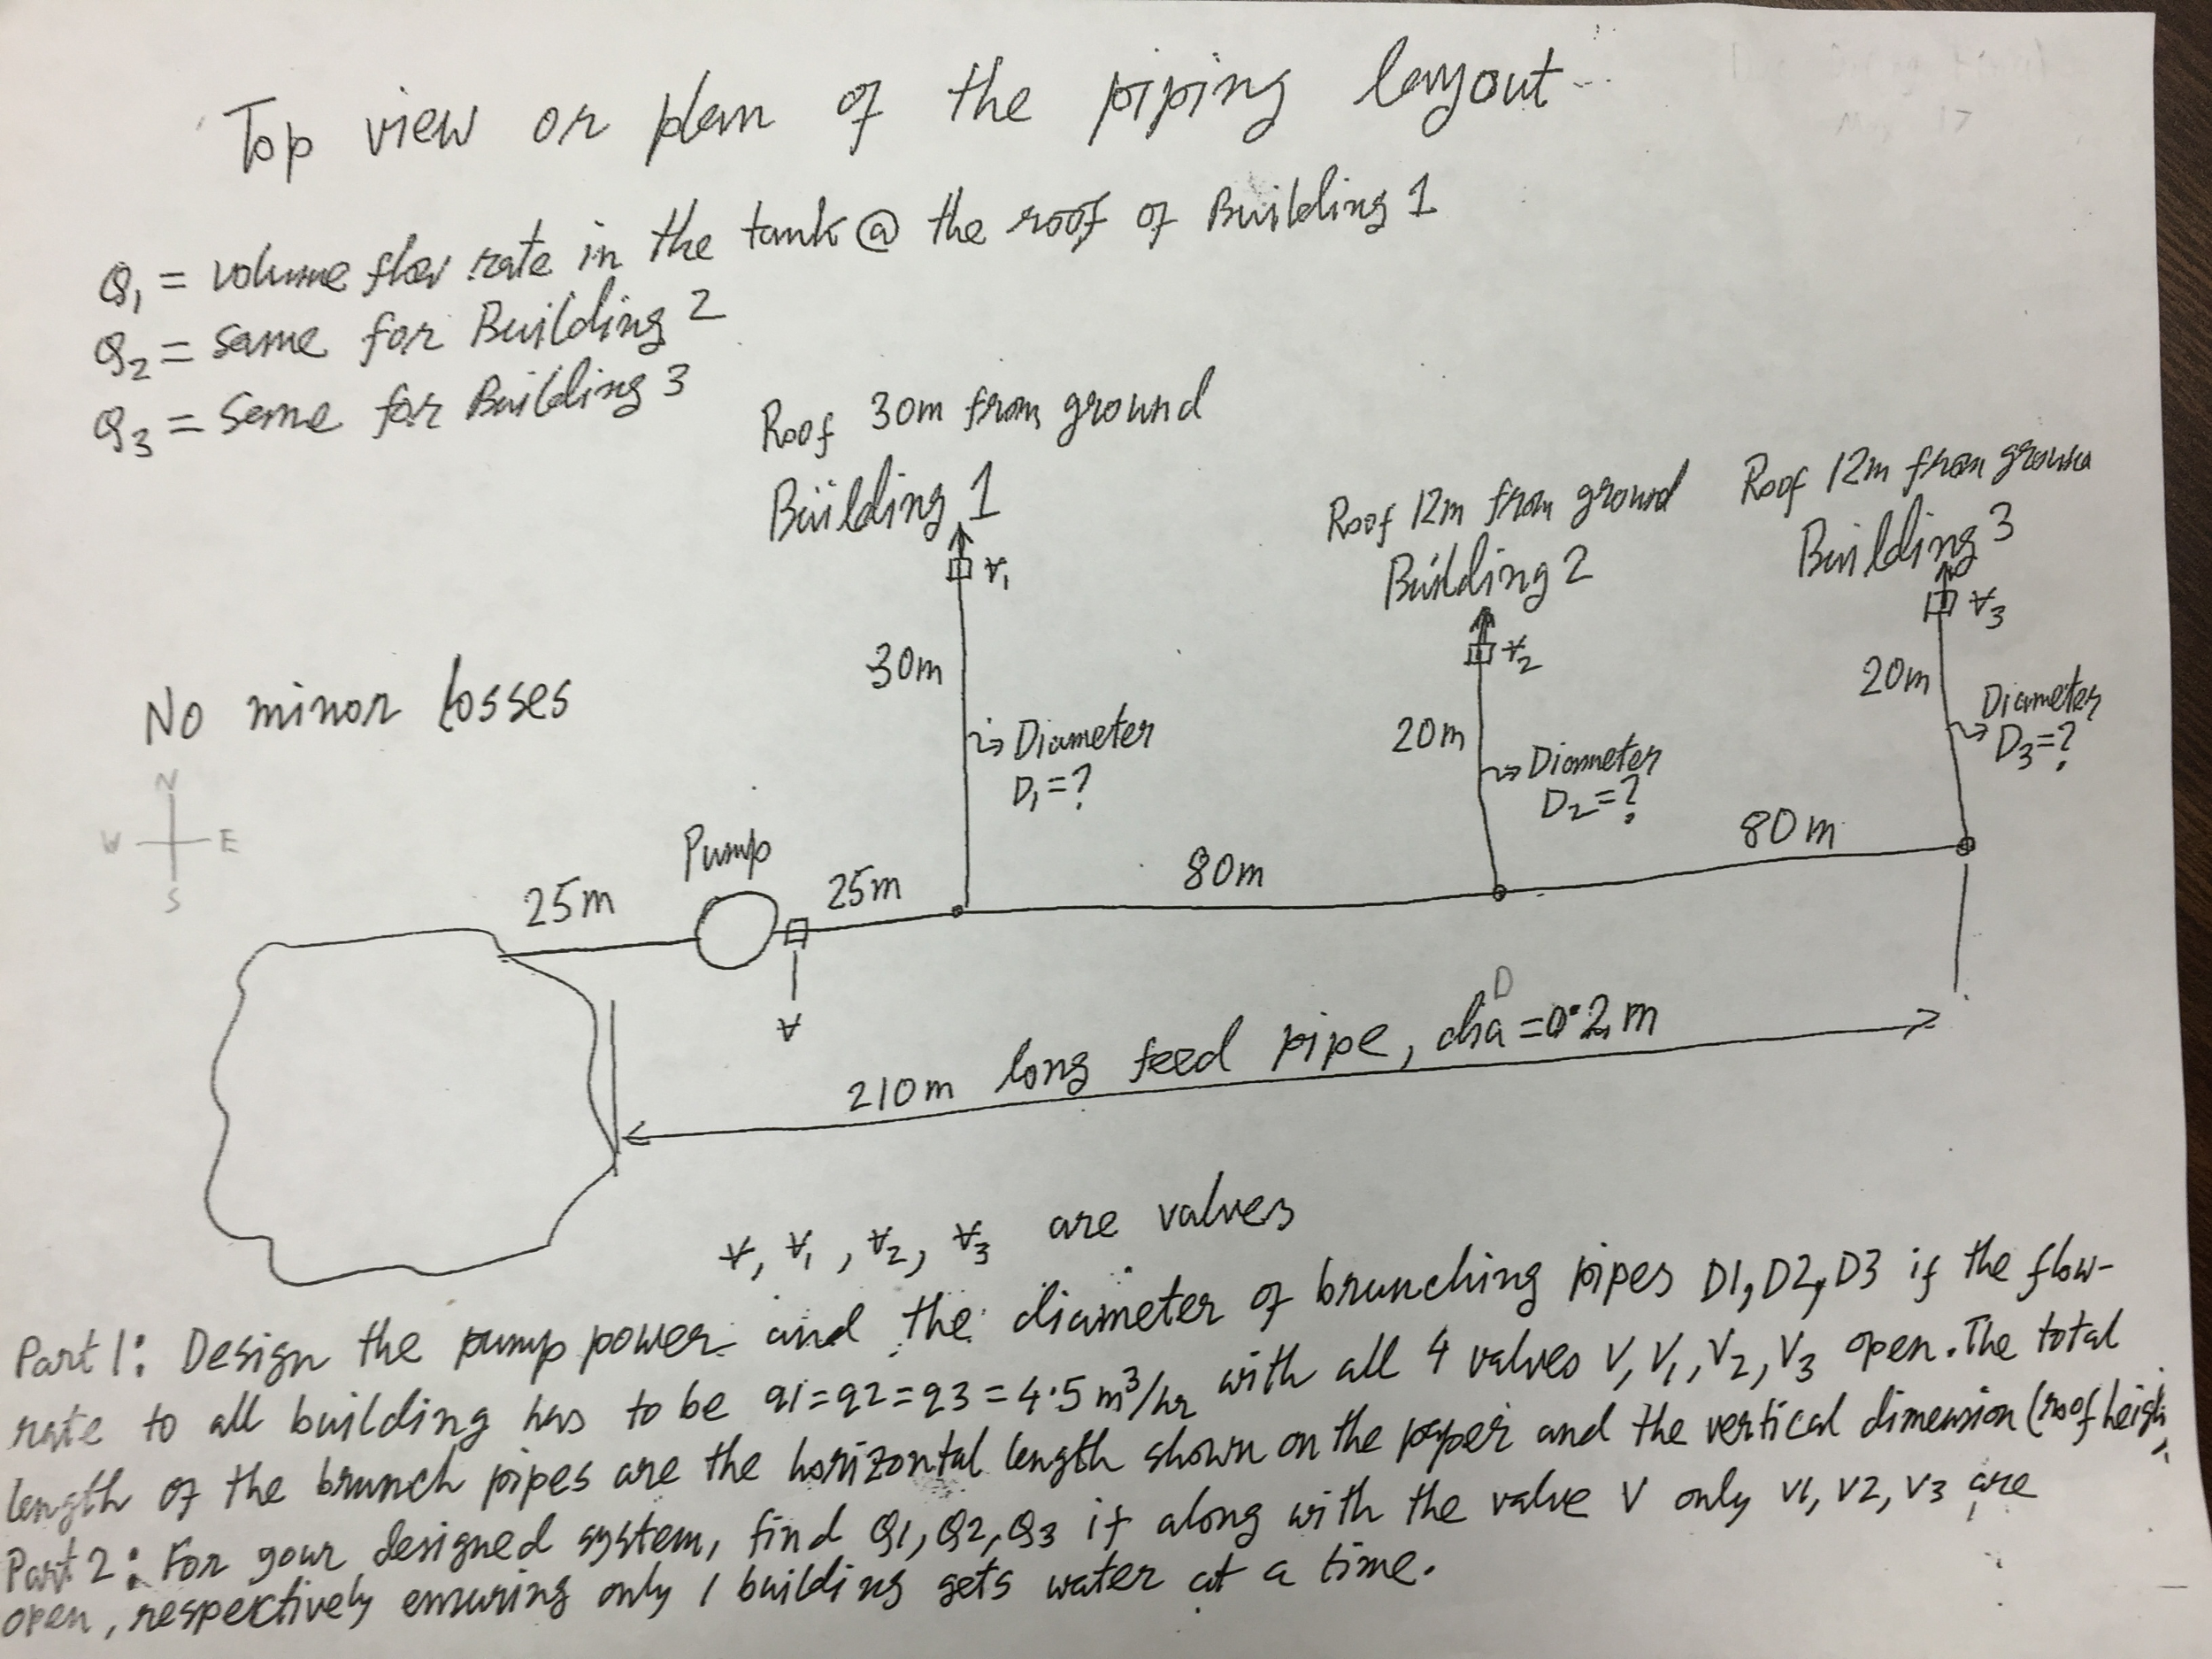 Top view or plan of the piping layout
Q1 = volume flow rate in the tank @ the roof of Building 1
Q2 = same for Building 2
Q3 = Same for Building 3
Roof 30m from ground
Building 1
Roof 12m from ground
Building 2
Roof 12m from ground
Building 3
V1
V2
V3
30m
20m
20m
No minor losses
Diameter
D1=?
Diameter
D2=?
Diameter
D3=?
N
W E
S
Pump
25m
25m
80m
80m
V
D
210m long feed pipe, dia = 0.2m
V, V1, V2, V3 are valves
Part 1: Design the pump power and the diameter of brunching pipes D1, D2, D3 if the flow-
rate to all building has to be q1=q2=q3=4.5 m³/hr with all 4 valves V, V1, V2, V3 open. The total
length of the brunch pipes are the horizontal length shown on the paper and the vertical dimension (roof heigh
Part 2: For your designed system, find Q1, Q2, Q3 if along with the valve V only V1, V2, V3 are
open, respectively ensuring only 1 building gets water at a time.